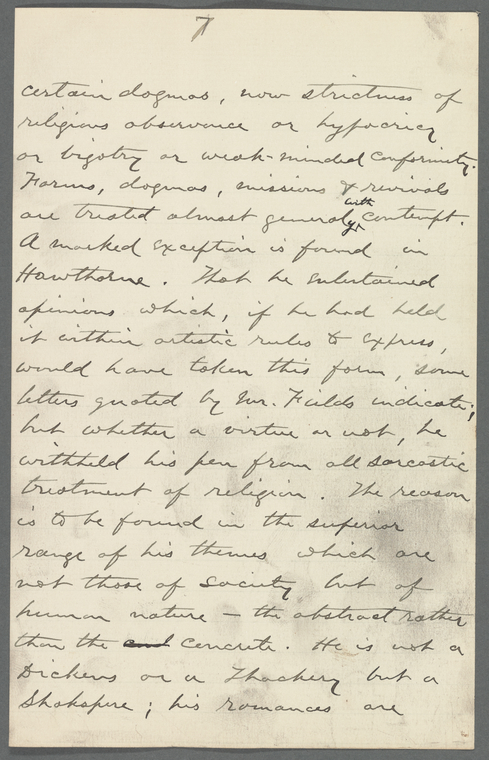 7
certain dogmas, now strictness of
religious observance or hypocricy
or bigotry or weak-minded conformity.
Forms, dogmas, missions & revivals
with
are treated almost generaly contempt.
A marked exception is found in
Hawthorne. That he entertained
opinions which, if he had held
it within artistic rules to express,
would have taken this form, some
letters quoted by Mr. Fields indicate;
but whether a virtue or not, he
withheld his pen from all sarcastic
treatment of religion. The reason
is to be found in the superior
range of his themes which are
not those of Society but of
human nature – the abstract rather
than the and concrete. He is not a
Dickens or a Thackery but a
Shakspere; his romances are